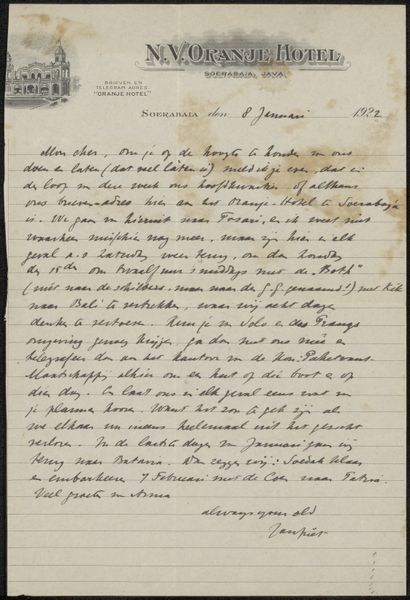 N.V. ORANJE HOTEL
SOERABAJA, JAVA.
BRIEVEN EN
TELEGRAM ADRES
"ORANJE HOTEL"
SOERABAIA den 8 Januari 1922
Mon cher, om je op de hoogte te houden van ons
doen en laten (dat veel laten is) meld ik je even, dat in
de loop van deze week ons hoofdkwartier of althans
ons brieven-adres hier an het Oranje-Hotel te Soerabaja
is. We gaan van hieruit naar Tosari, en ik weet niet
waarheen misschien nog meer, maar zijn hier in elk
geval a.s. Zaturdag weer terug, om den Zondag
den 15den om twaalf uur 's middags met de "Both"
(niet naar de schilders, maar naar de g.g. genaamd!) met Kik
naar Bali te vertrekken, waar wij acht dagen
denken te vertoeven. Kun je in Solo en
omgeving genoeg krijgen, ga dan met ons mee en
telegrafeer dan an het kantoor van de Kon. Paketvaart
Maatschappij alhier om een hut op die boot en op
dien dag. En laat ons in elk geval eens wat van
je plannen hooren. Want het zou te gek zijn als
we elkaar nu ineens heelemaal uit het gezicht
verloren. In de laatste dagen van Januari gaan wij
terug naar Batavia. Dan zeggen wij: Soedah
en embarkeeren 7 Februari met de Coen naar
Veel groeten van Anna
always your old
Jan Piet